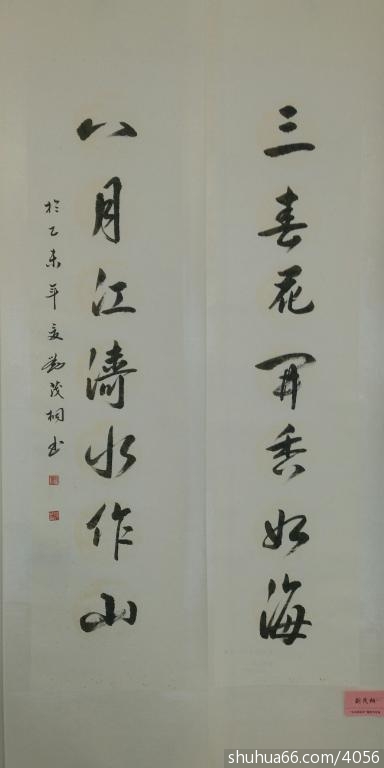 三春花開香如海
八月江濤水作山
於乙未年夏劉茂桐書
劉茂桐
shuhua66.com/4056